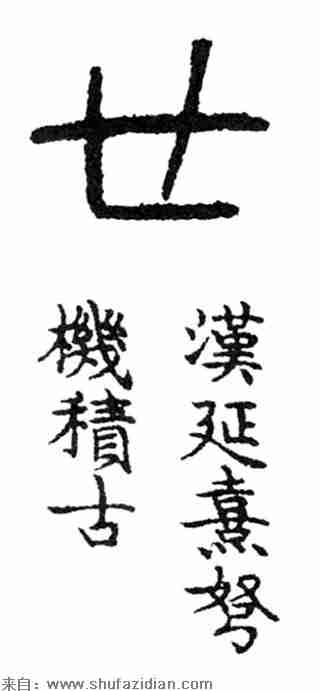 廿
漢延熹弩
機積古
来自：www.shufazidian.com